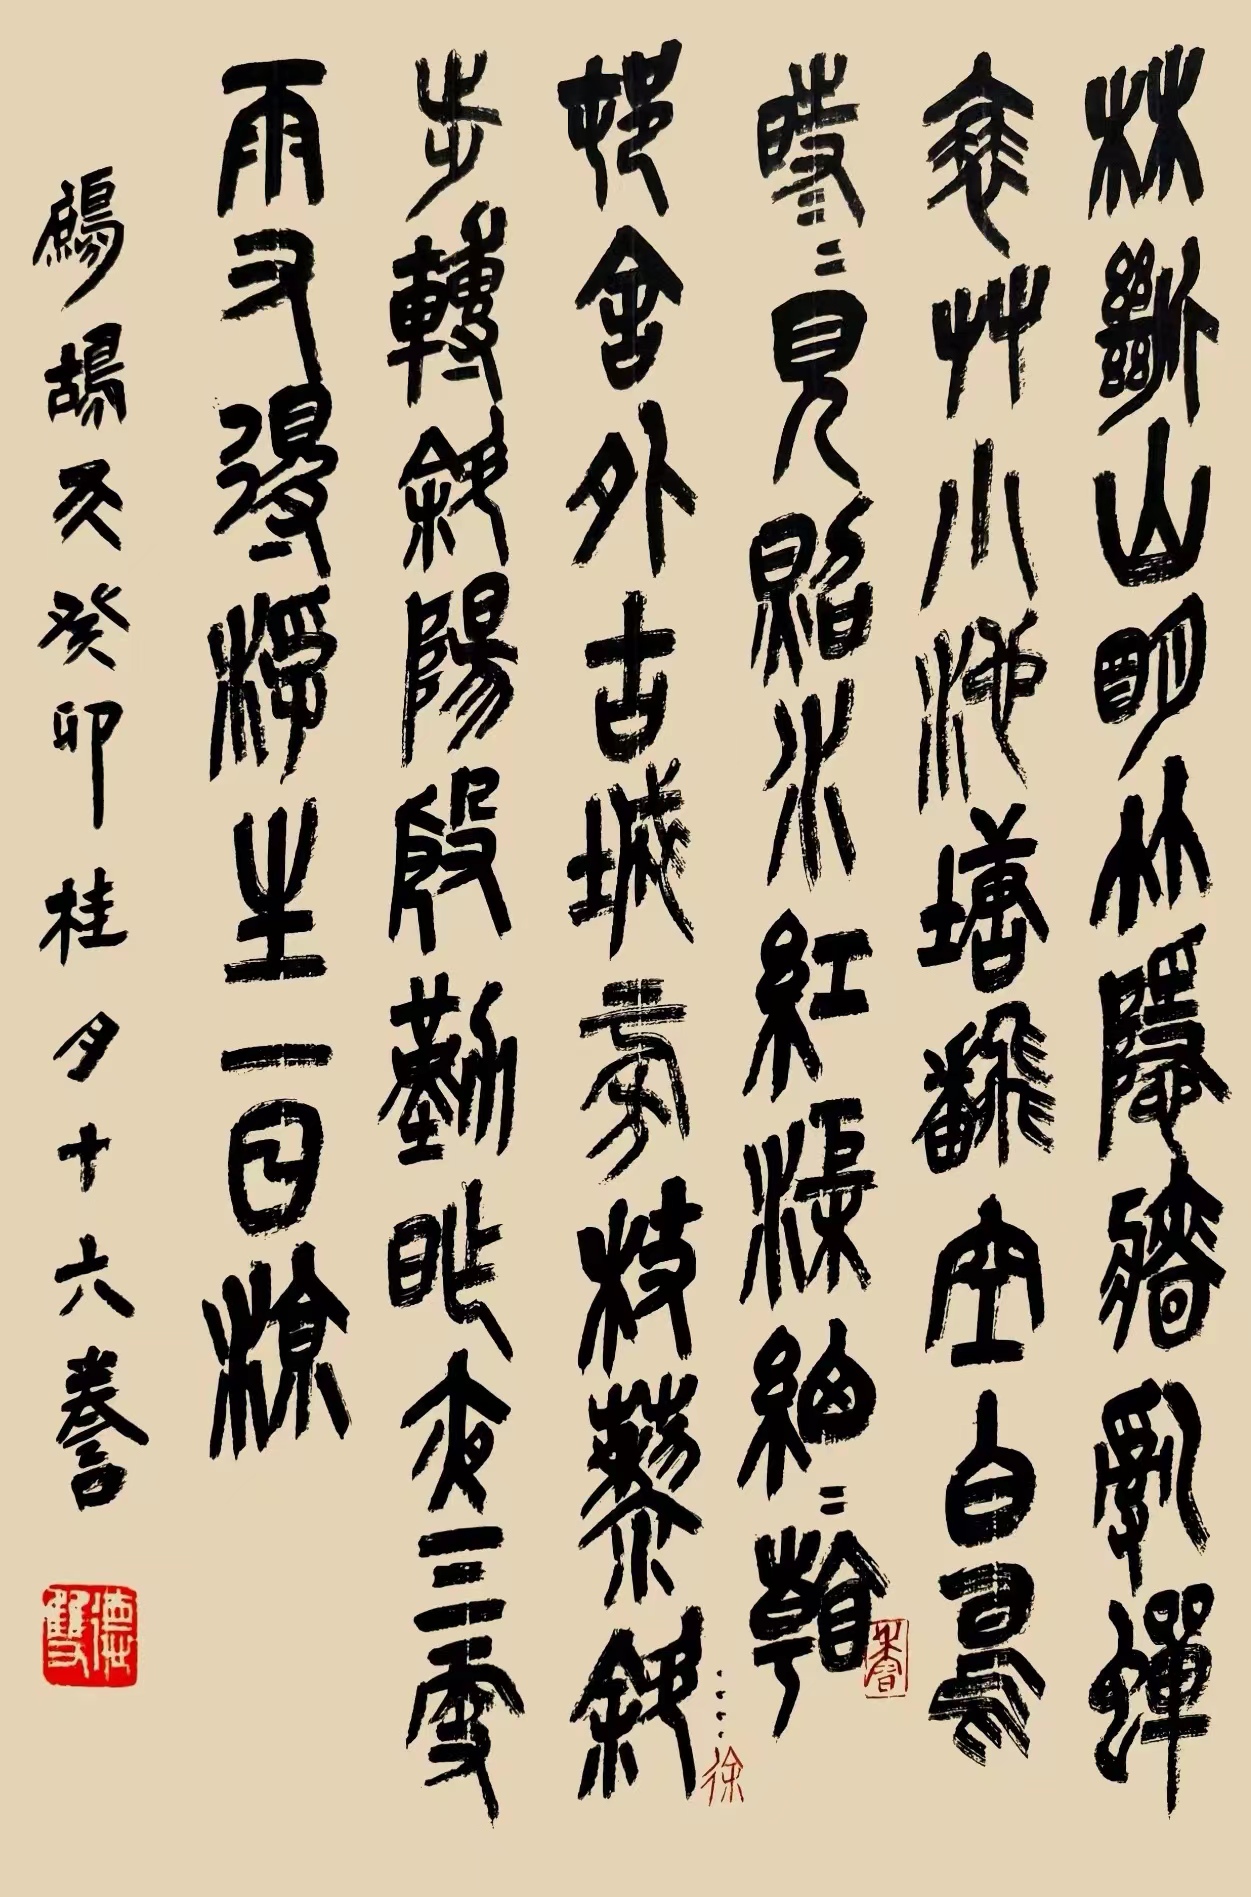 林斷山明竹隱牆亂蟬
衰草小池塘翻空白鳥
時〻見照水紅渠細〻香
村舍外古城旁杖藜斜
徐
步轉斜陽殷勤昨夜三更
雨又得浮生一日涼
鷓鴣天癸卯桂月十六誊
德雙